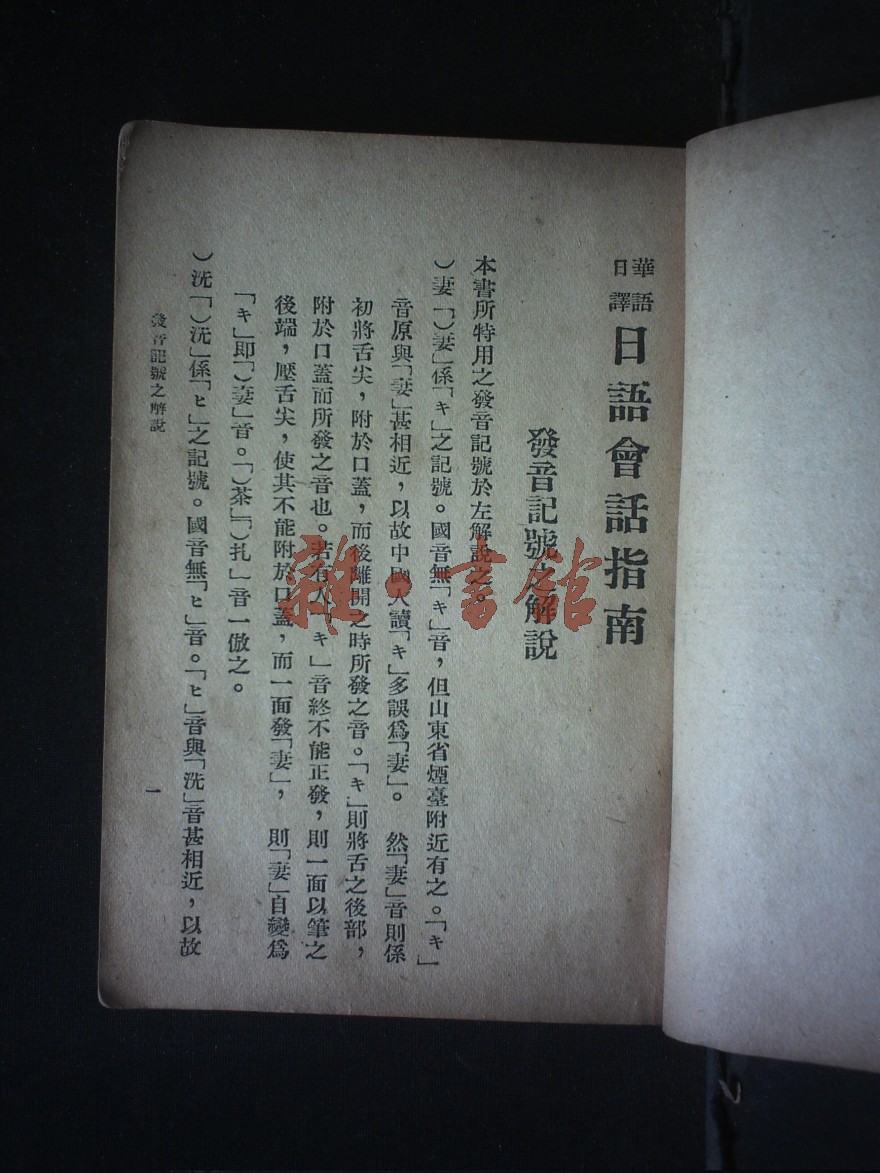 華語
日譯
日語會話指南
發音記號之解說
本書所特用之發音記號於左解說之。
)妻「)妻」係「キ」之記號。國音無「キ」音，但山東省煙臺附近有之。「キ」
音原與「妻」甚相近，以故中國人讀「キ」多誤爲「妻」。 然「妻」音則係
初將舌尖，附於口蓋，而後離開之時所發之音。「キ」則將舌之後部，
附於口蓋而所發之音也。若有人「キ」音終不能正發，則一面以筆之
後端，壓舌尖，使其不能附於口蓋，而一面發「妻」， 則「妻」自變爲
「キ」即「)妻」音。「)茶」「)扎」音一倣之。
)洗「)洗」係「ヒ」之記號。國音無「ヒ」音。「ヒ」音與「洗」音甚相近，以故
發音記號之解說
一
雜·書館